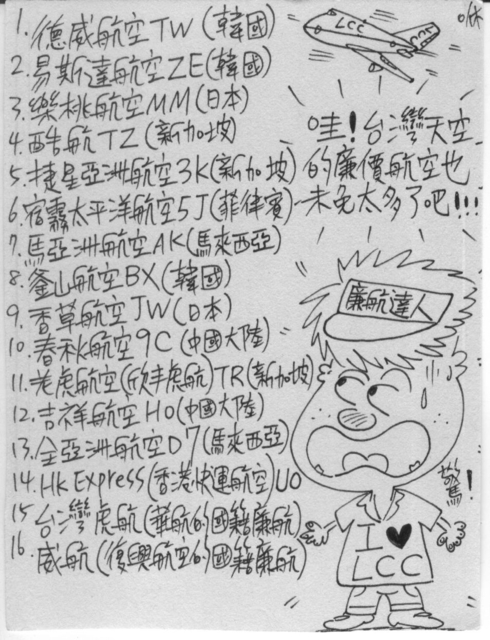 1. 德威航空TW(韓國)
2. 易斯達航空ZE(韓國)
3. 樂桃航空MM(日本)
4. 酷航TZ(新加坡)
5. 捷星亞洲航空3K(新加坡)
6. 宿霧太平洋航空5J(菲律賓)
7. 馬亞洲航空AK(馬來西亞)
8. 釜山航空BX(韓國)
9. 香草航空JW(日本)
10. 春秋航空9C(中國大陸)
11. 老虎航空(欣丰虎航)TR(新加坡)
12. 吉祥航空HO(中國大陸)
13. 全亞洲航空D7(馬來西亞)
14. HK Express(香港快運航空)UO
15 台灣虎航(華航的國籍廉航)
16. 威航(復興航空的國籍廉航)
LCC
哇!台灣天空
的廉價航空也
未免太多了吧!!!
廉航達人
驚!
I ♥
LCC